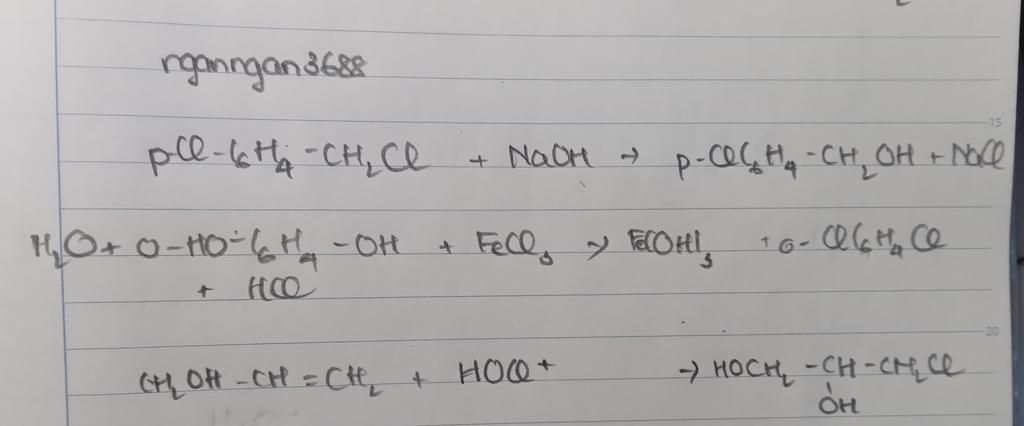 nganngan3688
15
pCl-C6H4-CH2Cl + NaOH → p-ClC6H4-CH2OH + NaCl
H2O + O-HO-C6H4-OH + FeCl3 → Fe(OH)3 + o-ClC6H4Cl
+ HCl
20
CH2OH-CH=CH2 + HOCl+ → HOCH2-CH-CH2Cl
OH